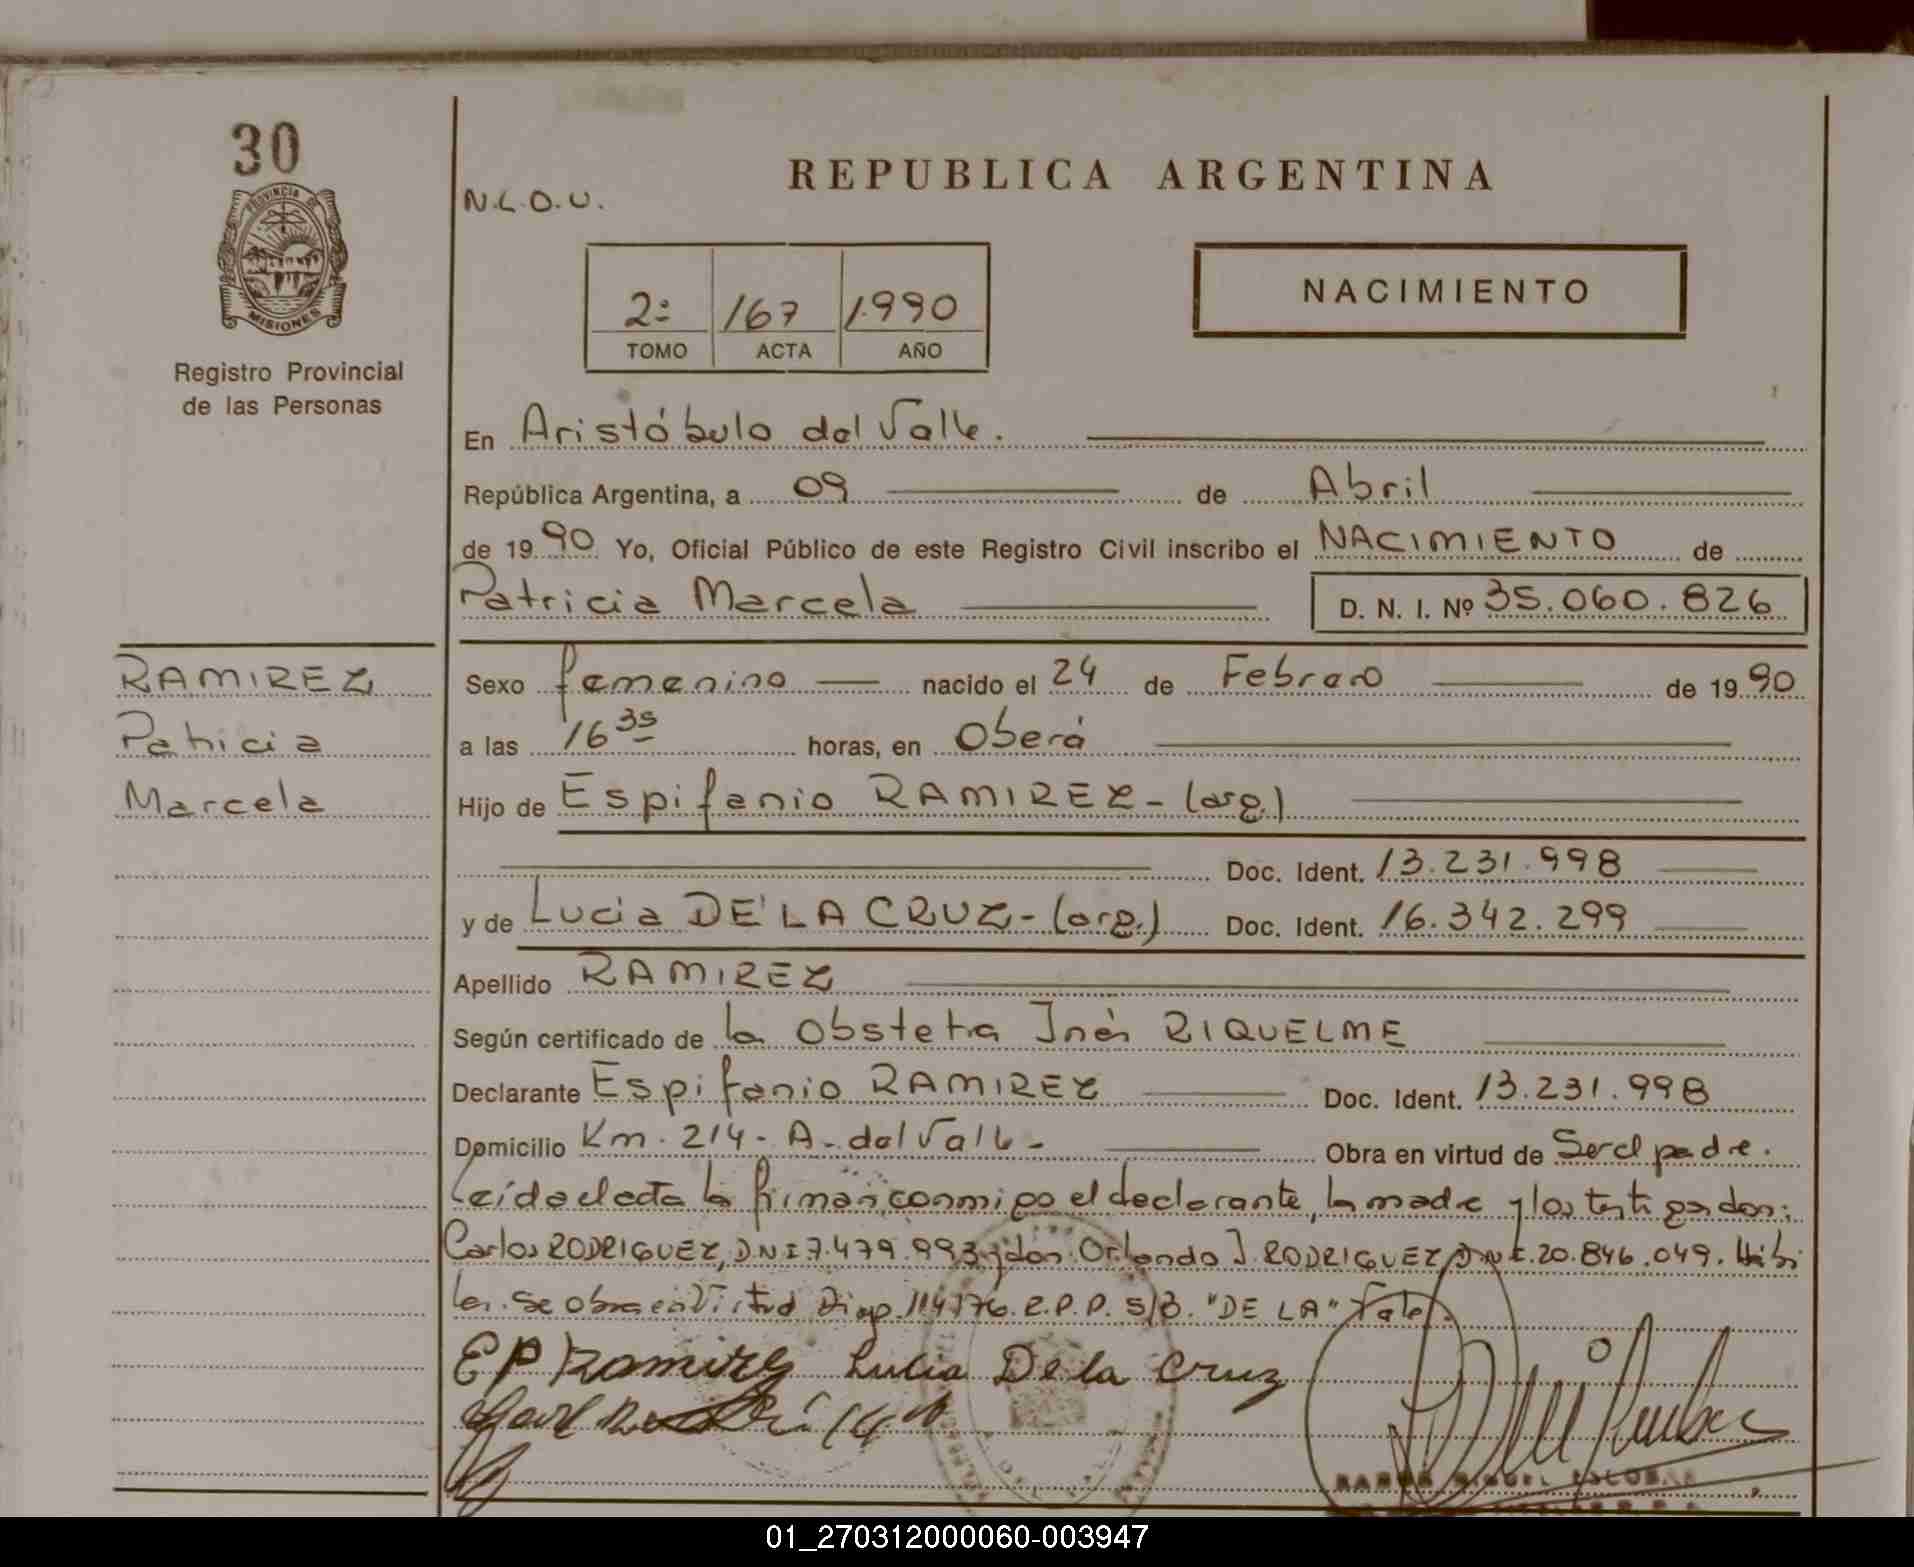 30
PROVINCIA DE
MISIONES
Registro Provincial
de las Personas
RAMIREZ
Patricia
Marcela
REPUBLICA ARGENTINA
N.L.O.U.
2º 167 1.990
TOMO ACTA AÑO
NACIMIENTO
En Aristóbulo del Valle.
República Argentina, a 09 de Abril
de 1990 Yo, Oficial Público de este Registro Civil inscribo el NACIMIENTO de
Patricia Marcela D. N. I. Nº 35.060.826
Sexo femenino nacido el 24 de Febrero de 1990
a las 16 35 horas, en Oberá
Hijo de Espifanio RAMIREZ - (arg.)
Doc. Ident. 13.231.998
y de Lucia DE LA CRUZ - (arg.) Doc. Ident. 16.342.299
Apellido RAMIREZ
Según certificado de la Obstetra Inés RIQUELME
Declarante Espifanio RAMIREZ Doc. Ident. 13.231.998
Domicilio Km. 214 - A. del Valle - Obra en virtud de Ser el padre.
Leída el acta la firman conmigo el declarante, la madre y los testigos don:
Carlos RODRIGUEZ, D.N.I 7.479.993 y don Orlando J. RODRIGUEZ D.N.I. 20.846.049. Hábi
les. Se obra en Virtud Disp. 114/76. R.P.P. S/B. "DE LA" Vale.
EP Ramirez Lucia De la Cruz
RAMON MIGUEL ESCOBAR
01_270312000060-003947